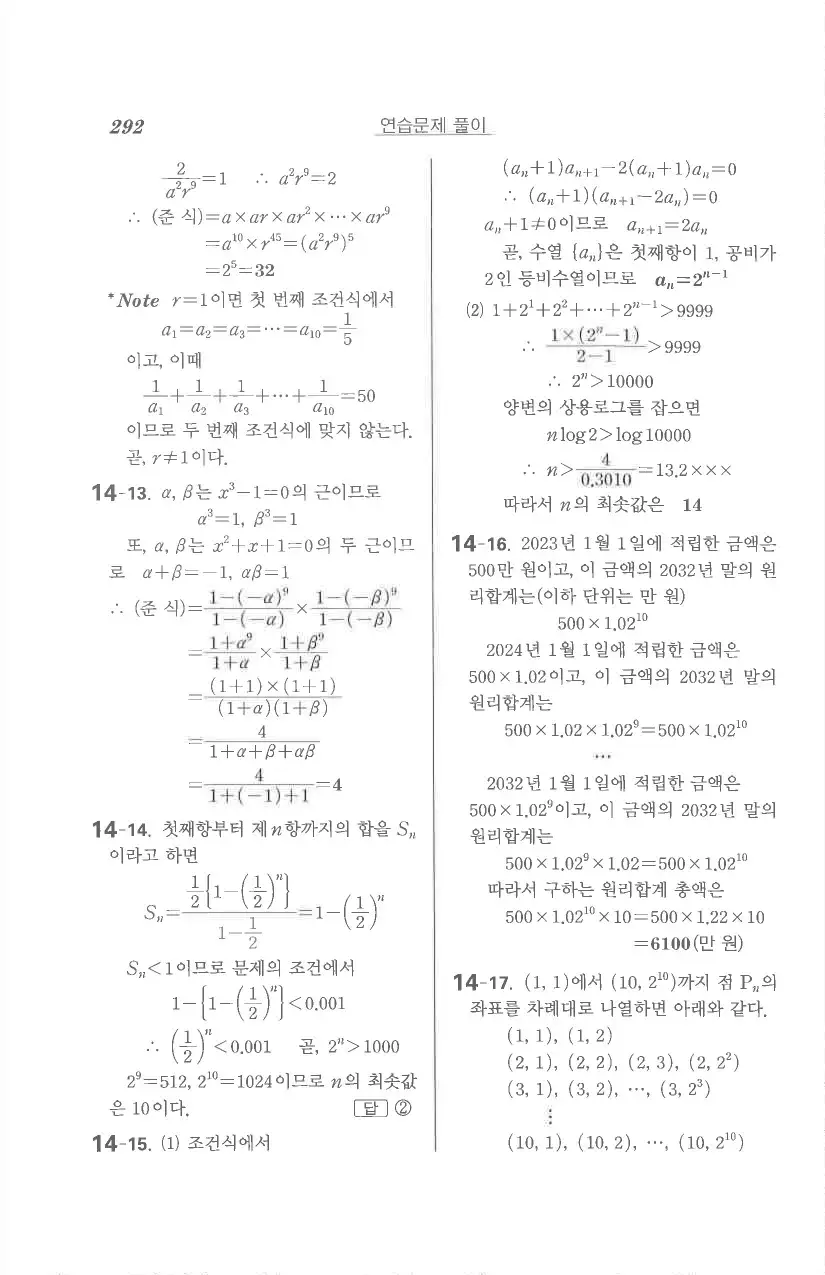 292
연습문제 풀이
2/(a²r⁹)=1 ∴ a²r⁹=2
∴ (준 식)=a×ar×ar²×⋯×ar⁹
=a¹⁰×r⁴⁵=(a²r⁹)⁵
=2⁵=32
*Note r=1이면 첫 번째 조건식에서
a₁=a₂=a₃=⋯=a₁₀=1/5
이고, 이때
1/a₁+1/a₂+1/a₃+⋯+1/a₁₀=50
이므로 두 번째 조건식에 맞지 않는다.
곧, r≠1이다.
14-13. α, β는 x³−1=0의 근이므로
α³=1, β³=1
또, α, β는 x²+x+1=0의 두 근이므
로 α+β=−1, αβ=1
∴ (준 식)=(1−(−α)⁹)/(1−(−α))×(1−(−β)⁹)/(1−(−β))
=(1+α⁹)/(1+α)×(1+β⁹)/(1+β)
=((1+1)×(1+1))/((1+α)(1+β))
=4/(1+α+β+αβ)
=4/(1+(−1)+1)=4
14-14. 첫째항부터 제n항까지의 합을 Sₙ
이라고 하면
Sₙ=(1/2{1−(1/2)ⁿ})/(1−1/2)=1−(1/2)ⁿ
Sₙ<1이므로 문제의 조건에서
1−{1−(1/2)ⁿ}<0.001
∴ (1/2)ⁿ<0.001 곧, 2ⁿ>1000
2⁹=512, 2¹⁰=1024이므로 n의 최솟값
은 10이다. 답 ②
14-15. (1) 조건식에서
(aₙ+1)aₙ₊₁−2(aₙ+1)aₙ=0
∴ (aₙ+1)(aₙ₊₁−2aₙ)=0
aₙ+1≠0이므로 aₙ₊₁=2aₙ
곧, 수열 {aₙ}은 첫째항이 1, 공비가
2인 등비수열이므로 aₙ=2ⁿ⁻¹
(2) 1+2¹+2²+⋯+2ⁿ⁻¹>9999
∴ (1×(2ⁿ−1))/(2−1)>9999
∴ 2ⁿ>10000
양변의 상용로그를 잡으면
nlog2>log10000
∴ n>4/0.3010=13.2×××
따라서 n의 최솟값은 14
14-16. 2023년 1월 1일에 적립한 금액은
500만 원이고, 이 금액의 2032년 말의 원
리합계는(이하 단위는 만 원)
500×1.02¹⁰
2024년 1월 1일에 적립한 금액은
500×1.02이고, 이 금액의 2032년 말의
원리합계는
500×1.02×1.02⁹=500×1.02¹⁰
⋯
2032년 1월 1일에 적립한 금액은
500×1.02⁹이고, 이 금액의 2032년 말의
원리합계는
500×1.02⁹×1.02=500×1.02¹⁰
따라서 구하는 원리합계 총액은
500×1.02¹⁰×10=500×1.22×10
=6100(만 원)
14-17. (1, 1)에서 (10, 2¹⁰)까지 점 Pₙ의
좌표를 차례대로 나열하면 아래와 같다.
(1, 1), (1, 2)
(2, 1), (2, 2), (2, 3), (2, 2²)
(3, 1), (3, 2), ⋯, (3, 2³)
⋮
(10, 1), (10, 2), ⋯, (10, 2¹⁰)